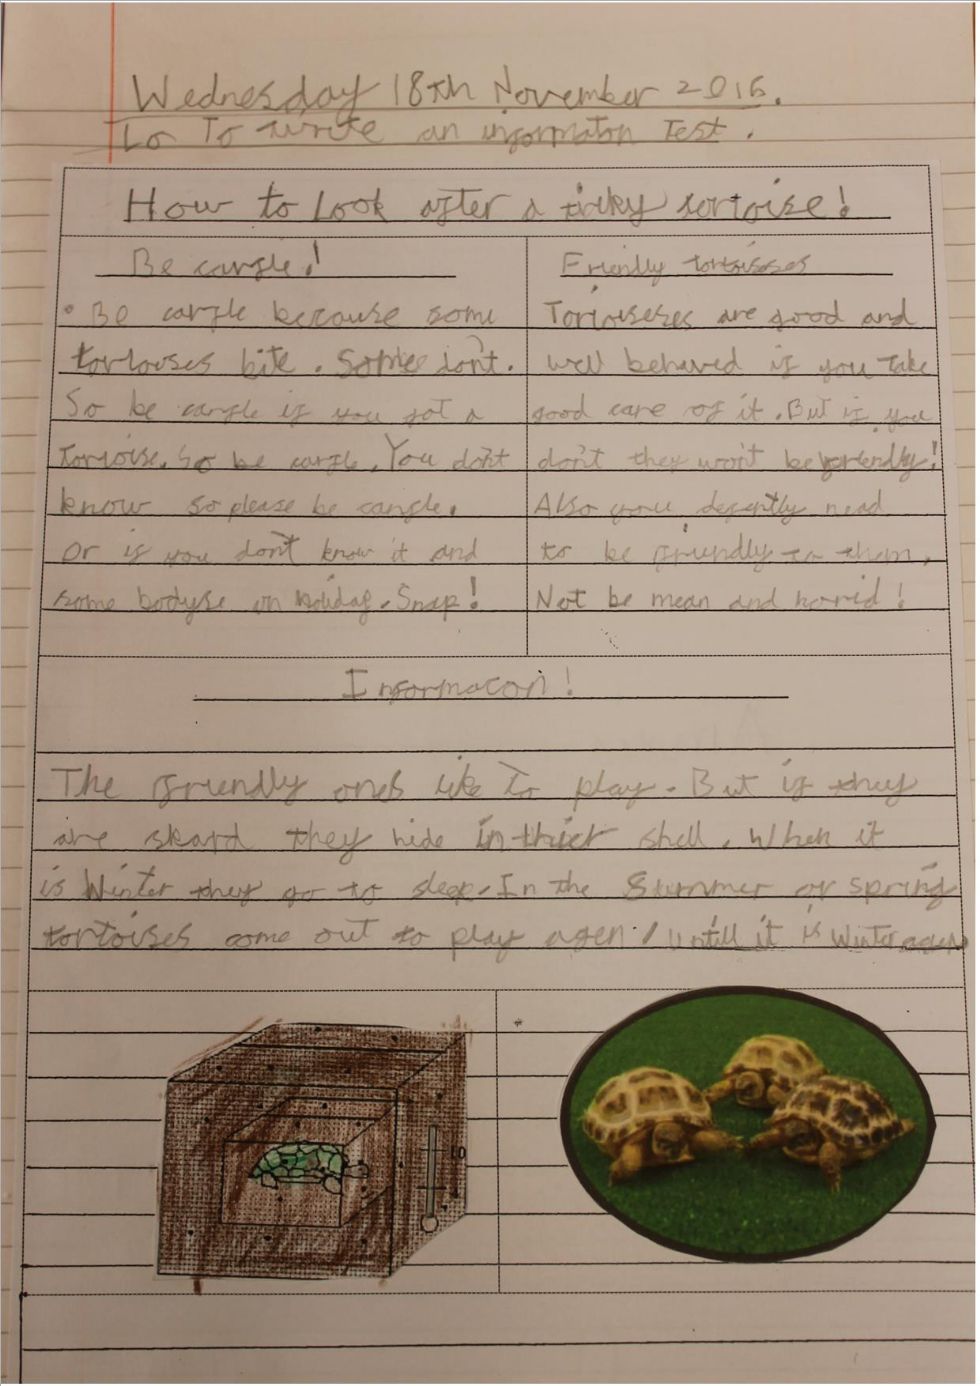 Wednesday 18th November 2016.
Lo To write an informaton Test.
How to Look after a triky tortoise!
Be carfle!
• Be carfle because some
tortouses bite. Somes don't.
So be carfle if you got a
Tortoise. So be carfle. You don't
know so please be carfle.
Or if you don't know it and
some bodyse on holiday. Snap!
Friendly tortoisses
Tortoiseses are good and
well behaved if you Take
good care of it. But if you
don't they won't be friendly!
Also you defently nead
to be friundly to them.
Not be mean and horrid!
Informacon!
The friundly ones like To play. But if they
are skard they hide in thier shell. When it
is Winter they go to sleep. In the Summer or spring
tortoises come out to play agen! untill it is Winter agen